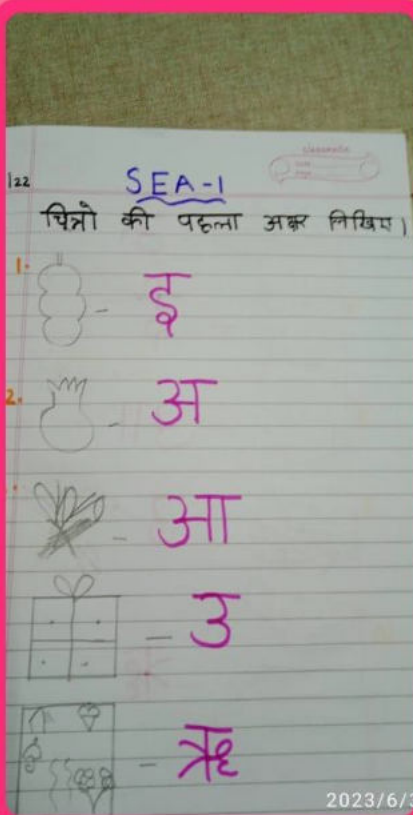 122
SEA-1
चित्रो की पहला अक्षर लिखिए।
1. - इ
2. - अ
- आ
- उ
- ऋ
2023/6/3